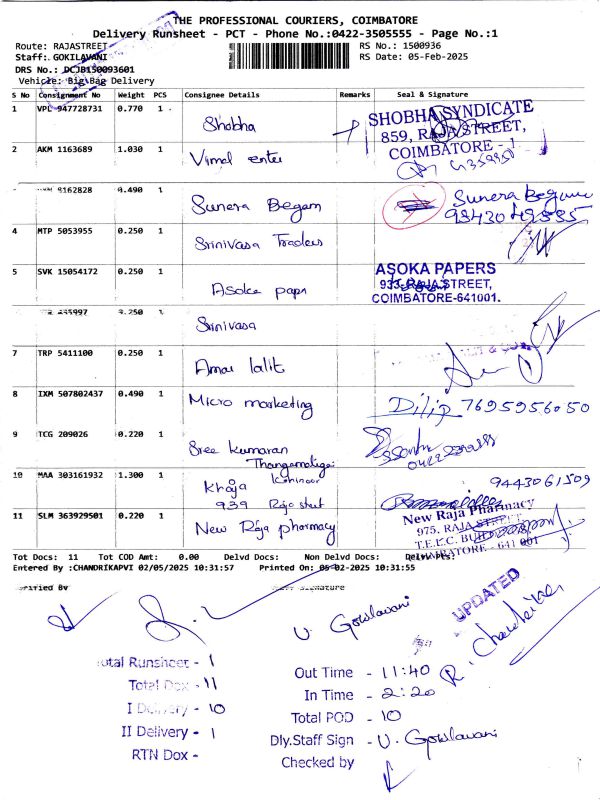 THE PROFESSIONAL COURIERS, COIMBATORE
Delivery Runsheet - PCT - Phone No.:0422-3505555 - Page No.:1
Route: RAJASTREET
RS No.: 1500936
Staff: GOKILAVANI
RS Date: 05-Feb-2025
DRS No.: DCJB150093601
Vehicle: Big Bag Delivery
S No Consignment No Weight PCS Consignee Details Remarks Seal & Signature
1 VPL 947728731 0.770 1 Shobha
SHOBHA SYNDICATE
859, RAJA STREET,
COIMBATORE - 1
2 AKM 1163689 1.030 1 Vimal enter
9162828 0.490 1 Sunera Begam
Sunera Begam
4 MTP 5053955 0.250 1 Srinivasa Traders
5 SVK 15054172 0.250 1 Asoka papr
ASOKA PAPERS
933, RAJA STREET,
COIMBATORE-641001.
0.250 Srinivasa
7 TRP 5411100 0.250 1 Amar lalit
8 IXM 507802437 0.490 1 Micro marketing
Dilip 7695956050
9 TCG 209026 0.220 1 Sree Kumaran
Thangamaligai
10 MAA 303161932 1.300 1 Khaja Kohinoor
939 Raja street
9443061509
11 SLM 363929501 0.220 1 New Raja pharmacy
New Raja Pharmacy
975, RAJA STREET
T.E.L.C. BUILDING
COIMBATORE - 641 001
Tot Docs: 11 Tot COD Amt: 0.00 Delvd Docs: Non Delvd Docs:
Entered By :CHANDRIKAPVI 02/05/2025 10:31:57 Printed On: 05-02-2025 10:31:55
Signature
U. Gokilavani
UPDATED
R. Chandrika
Total Runsheet - 1
Total Dox - 11
I Delivery - 10
II Delivery - 1
RTN Dox -
Out Time - 11:40
In Time - 2:20
Total POD - 10
Dly.Staff Sign - U. Gokilavani
Checked by